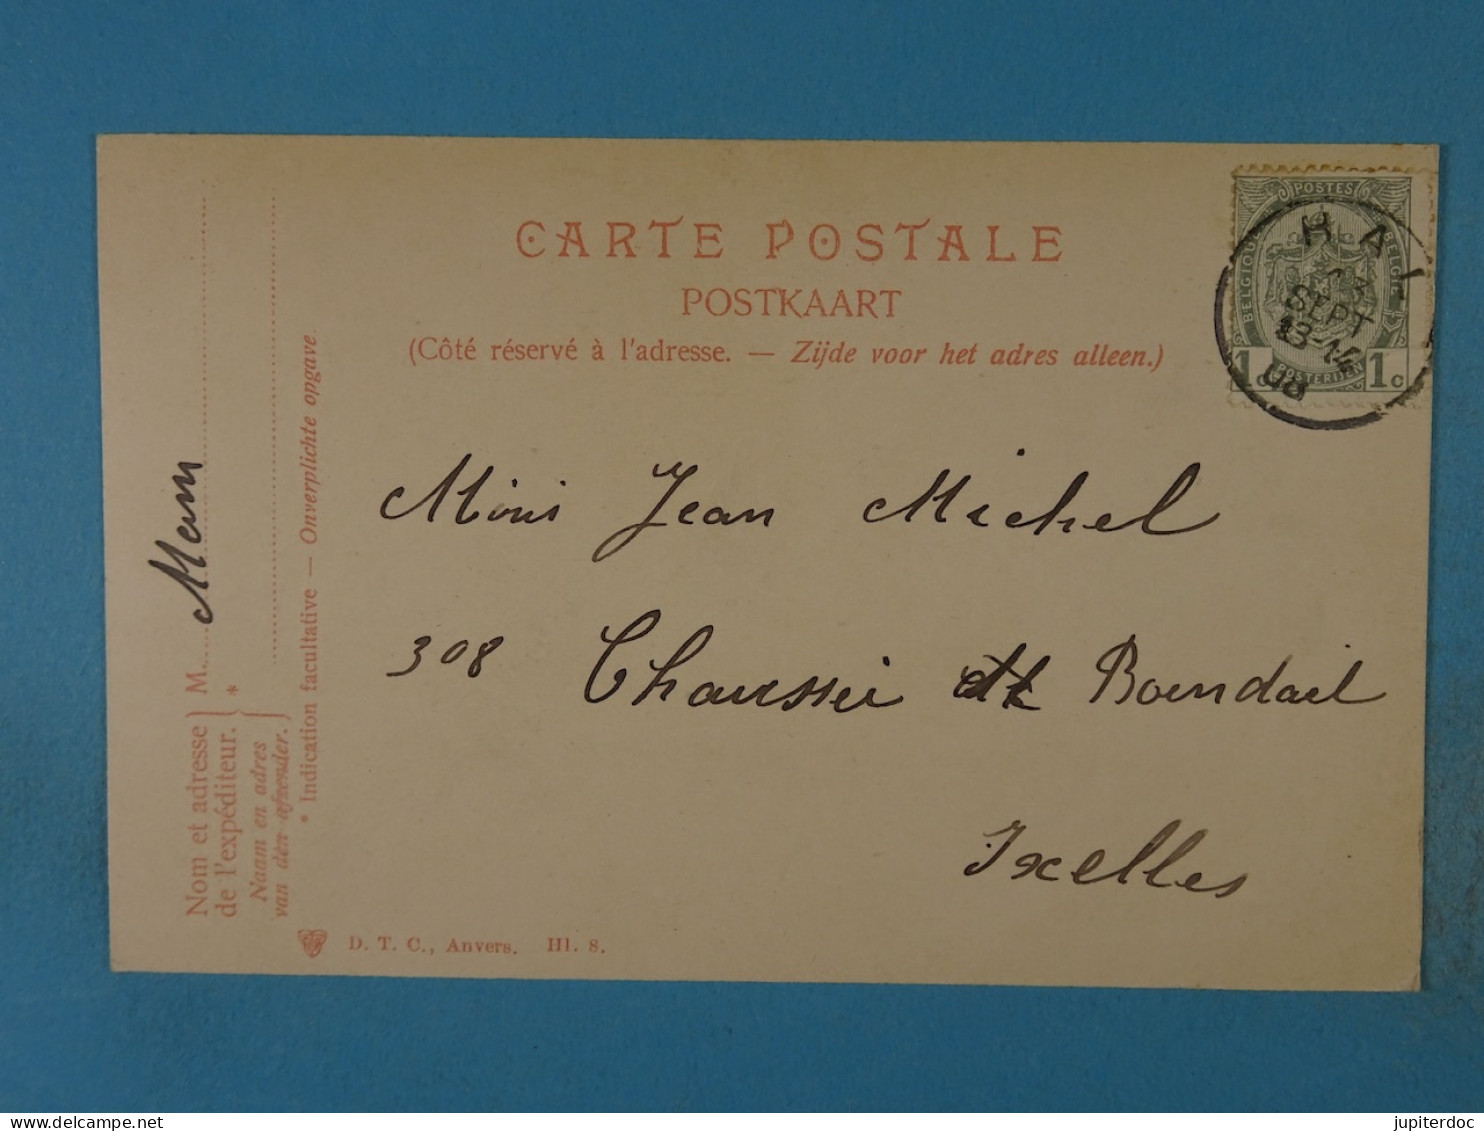 CARTE POSTALE
POSTKAART
(Côté réservé à l'adresse. — Zijde voor het adres alleen.)
POSTES
BELGIQUE
BELGIË
POSTERIJEN
1c 1c
HAL
13
SEPT
13-14
08
Jean Michel
308 Chaussée de Boendael
Ixelles
Nom et adresse
de l'expéditeur.
M. Mam
*
Naam en adres
van den afzender.
* Indication facultative — Onverplichte opgave
D. T. C., Anvers. Hl. 8.
jupiterdoc